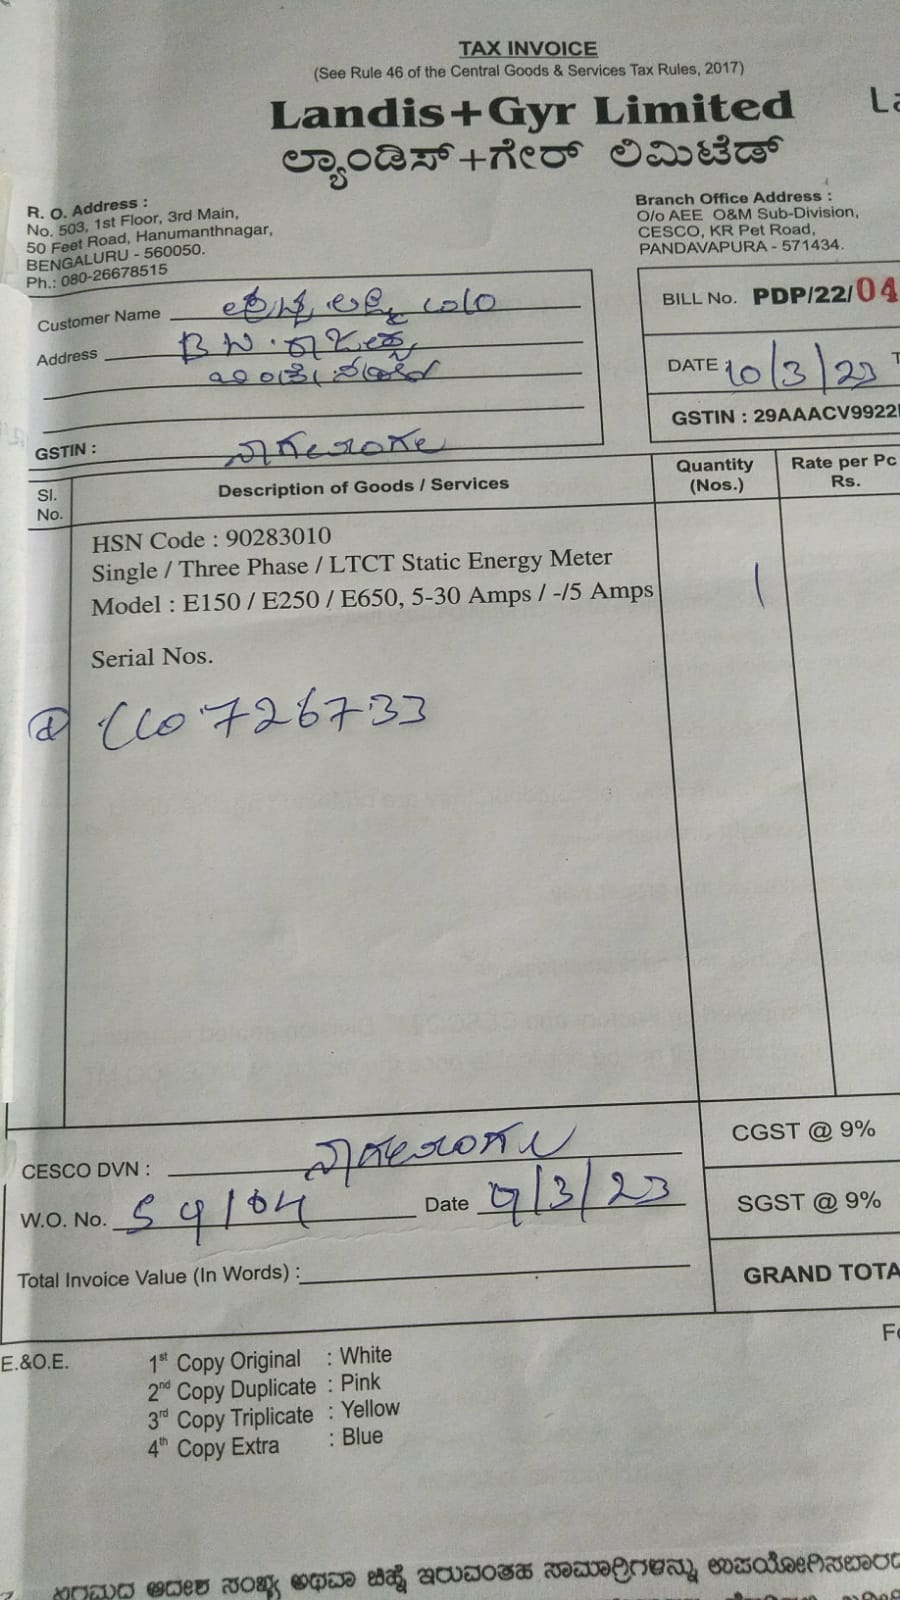 TAX INVOICE
(See Rule 46 of the Central Goods & Services Tax Rules, 2017)
Landis+Gyr Limited
ಲ್ಯಾಂಡಿಸ್+ಗೇರ್ ಲಿಮಿಟೆಡ್
R. O. Address :
No. 503, 1st Floor, 3rd Main,
50 Feet Road, Hanumanthnagar,
BENGALURU - 560050.
Ph.: 080-26678515
Branch Office Address :
O/o AEE O&M Sub-Division,
CESCO, KR Pet Road,
PANDAVAPURA - 571434.
Customer Name
Address
GSTIN :
BILL No. PDP/22/04
DATE 10/3/23
GSTIN : 29AAACV9922
Sl. No.
Description of Goods / Services
Quantity (Nos.)
Rate per Pc Rs.
HSN Code : 90283010
Single / Three Phase / LTCT Static Energy Meter
Model : E150 / E250 / E650, 5-30 Amps / -/5 Amps
1
Serial Nos.
7726733
CESCO DVN :
W.O. No. 59/04 Date 9/3/23
Total Invoice Value (In Words) :
CGST @ 9%
SGST @ 9%
GRAND TOTA
E.&O.E.
1st Copy Original : White
2nd Copy Duplicate : Pink
3rd Copy Triplicate : Yellow
4th Copy Extra : Blue
ಆದೇಶ ಸಂಖ್ಯೆ ಅಥವಾ ಚಿಹ್ನೆ ಇರುವಂತಹ ಸಾಮಾಗ್ರಿಗಳನ್ನು